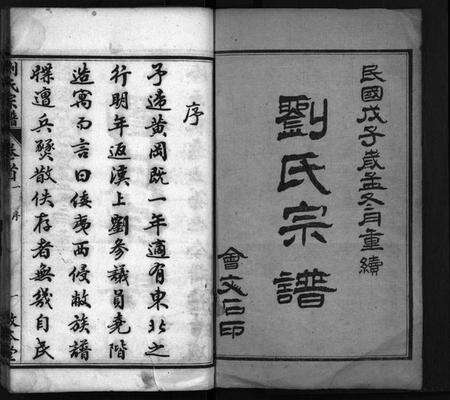 民國戊子歲孟冬月重續
劉氏宗譜
會文石印
序
予歸黃岡既一年適有東北之
行明年返漢上劉參議員堯階
造寓而言曰倭夷西侵敝族譜
牒遭兵燹散佚存者無幾自民
劉氏宗譜
卷首
序